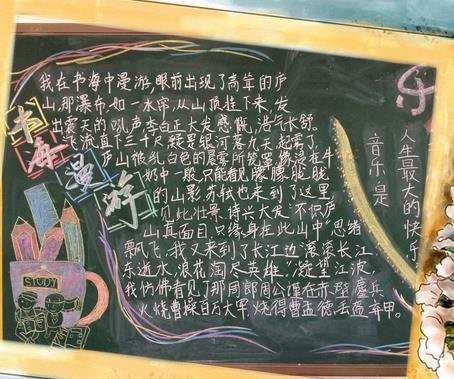 我在书海中漫游,眼前出现了高耸的庐
山,那瀑布如一水帘,从山顶挂下来,发
出震天的吼声,李白正大发感慨,浩气长舒。
"飞流直下三千尺,疑是银河落九天"起雾了,
庐山被乳白色的晨雾所笼罩,像浸在牛
奶中一般,只能看见朦朦胧胧
的山影,苏轼也来到了这里,
见此壮景,诗兴大发"不识庐
山真面目,只缘身在此山中"思绪
飘飞,我又来到了长江边"滚滚长江
东逝水,浪花淘尽英雄",望江波,
我仿佛看见了那周郎周公瑾在赤壁鏖兵
火烧曹操百万大军,烧得曹孟德去盔弃甲。
书海漫游
STUDY
乐
音乐是
人生最大的快乐